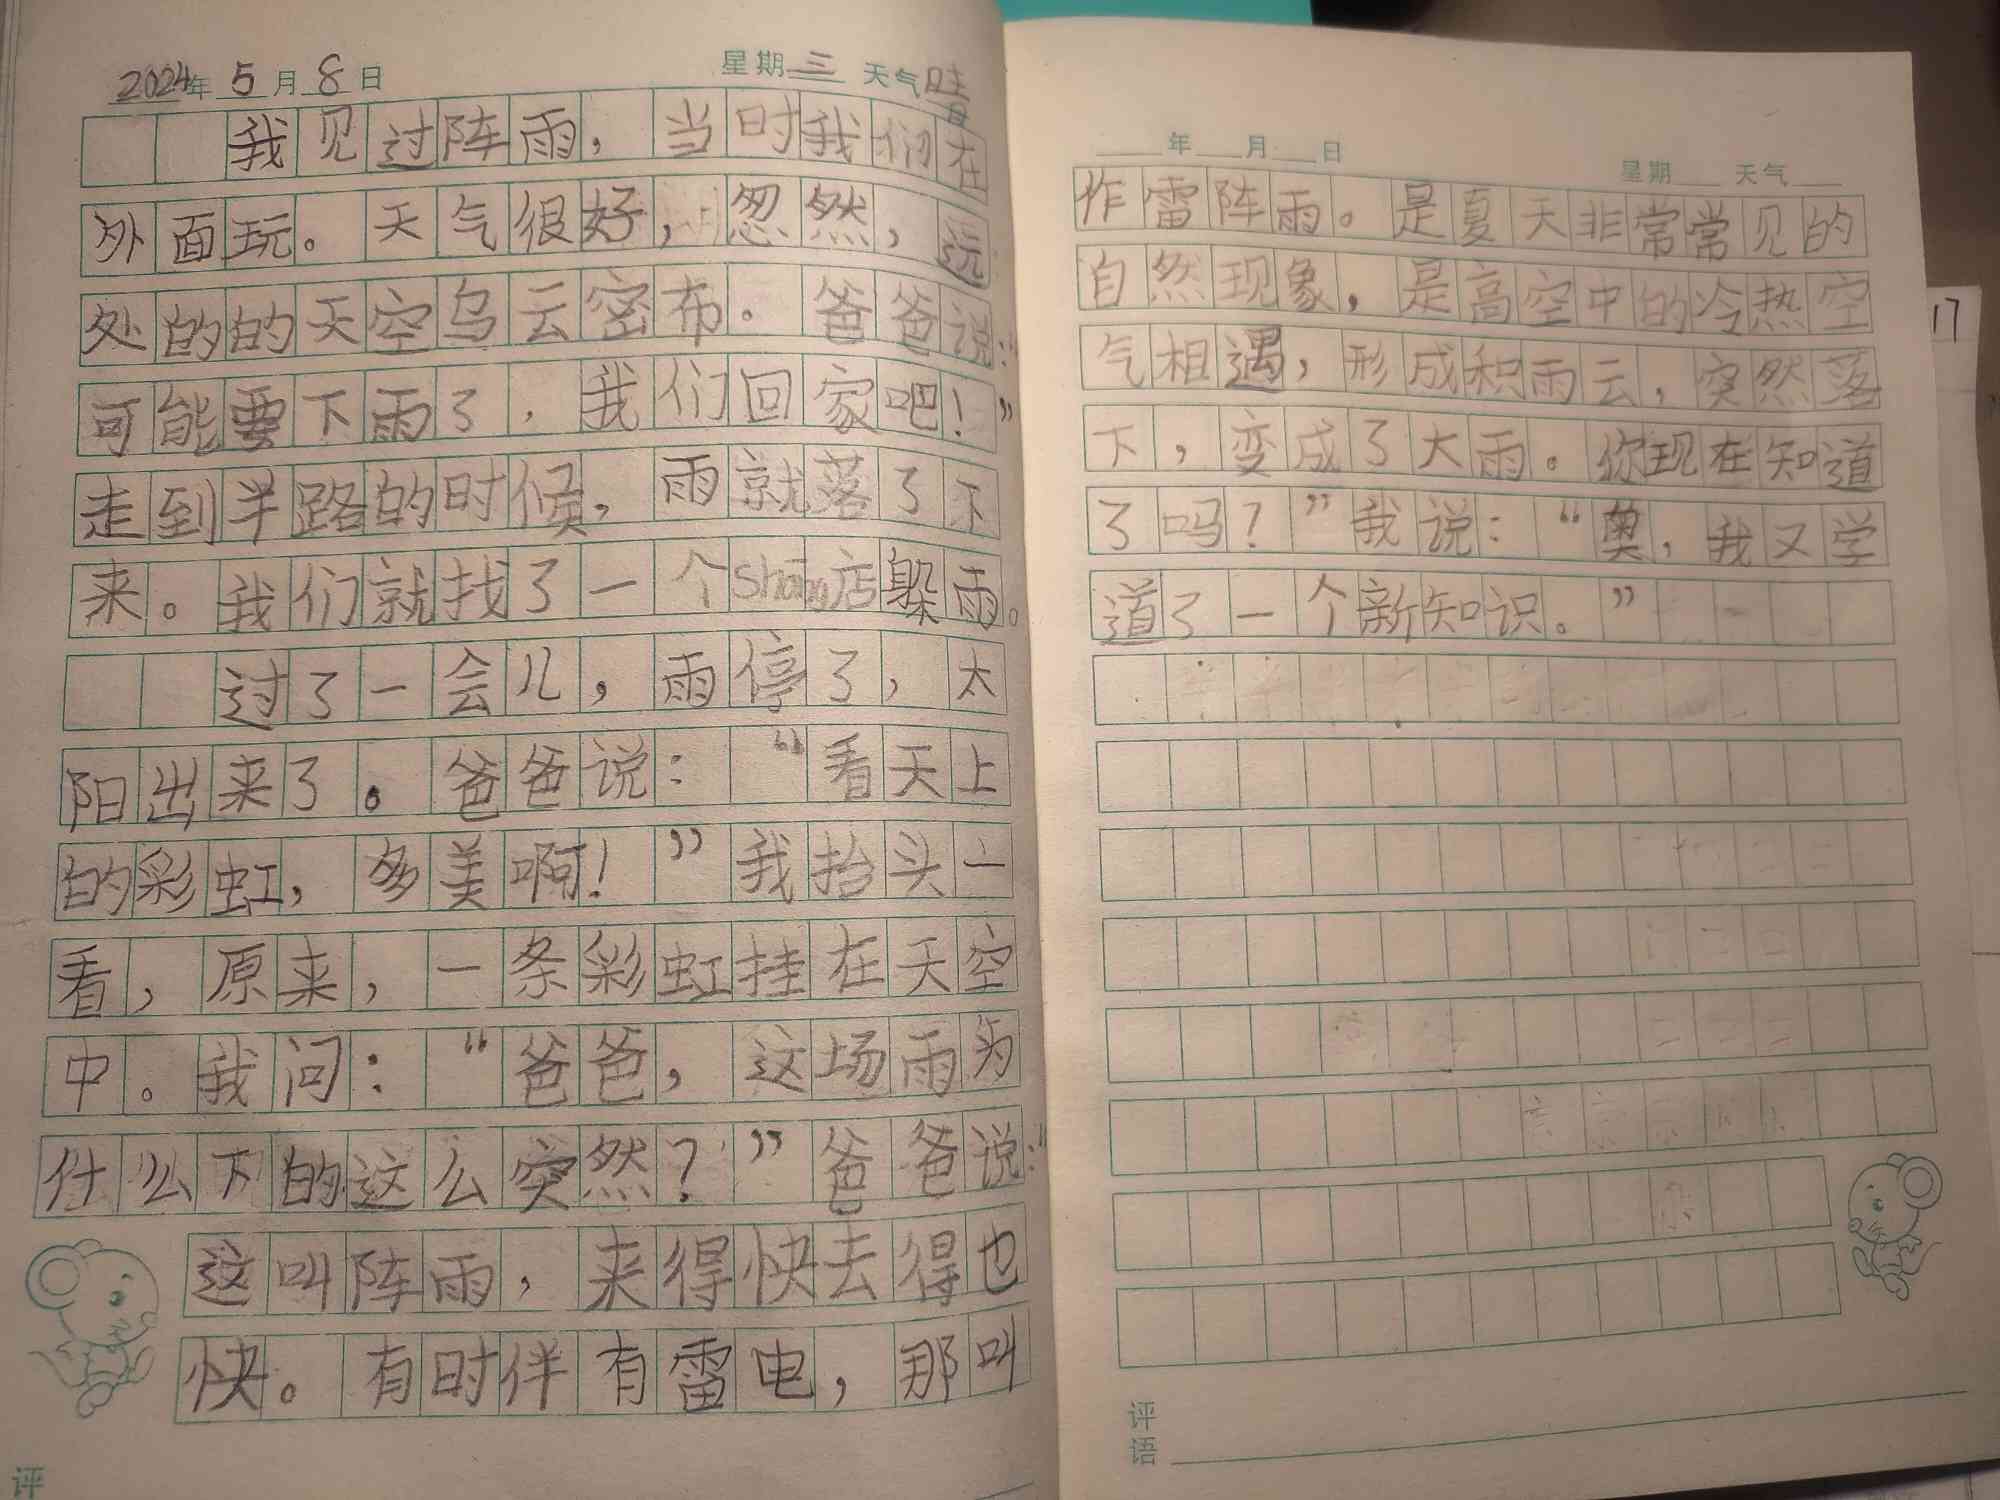 2024年 5月 8日 星期三 天气晴
我见过阵雨，当时我们在
外面玩。天气很好，忽然，远
处的的天空乌云密布。爸爸说：“
可能要下雨了，我们回家吧！”
走到半路的时候，雨就落了下
来。我们就找了一个shāng店躲雨。
过了一会儿，雨停了，太
阳出来了。爸爸说：“看天上
的彩虹，多美啊！”我抬头一
看，原来，一条彩虹挂在天空
中。我问：“爸爸，这场雨为
什么下的这么突然？”爸爸说：“
这叫阵雨，来得快去得也
快。有时伴有雷电，那叫
评
年 月 日 星期 天气
作雷阵雨。是夏天非常常见的
自然现象，是高空中的冷热空
气相遇，形成积雨云，突然落
下，变成了大雨。你现在知道
了吗？”我说：“奥，我又学
道了一个新知识。”
评语
17